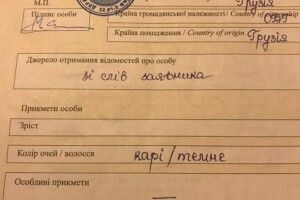 М.П.
Підпис особи
Країна громадянської належності / Country of
Грузія
Країна походження / Country of origin
Грузія
Джерело отримання відомостей про особу
зі слів заявника
Прикмети особи
Зріст
Колір очей / волосся
карі / темне
Особливі прикмети